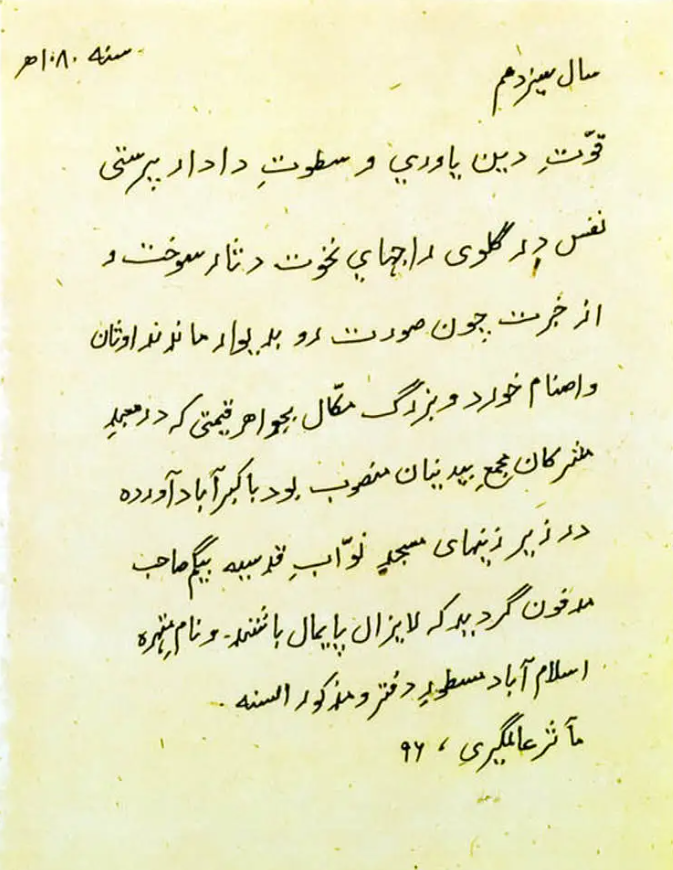 سنه ۱۰۸۰ اهر
سال سیزدهم
قوّتِ دین یاوري و سطوتِ دادار پرستی
نفس در گلوی راجهاي نخوت دثار سوخت و
از حیرت چون صورت رو بدیوار ماندند اوثان
واصنام خورد و بزرگ مکّال بجواهر قیمتی که در معبدِ
مشرکان مجمعِ بیدینان منصوب بود باکبرآباد آورده
در زیر زینهای مسجدِ نوّابِ قدسیه بیگم صاحب
مدفون گردید که لایزال پایمال باشند۔ و نام متهره
اسلام آباد مسطورِ دفتر و مذکور السنه۔
مآثر عالمگیري ، ۹۶